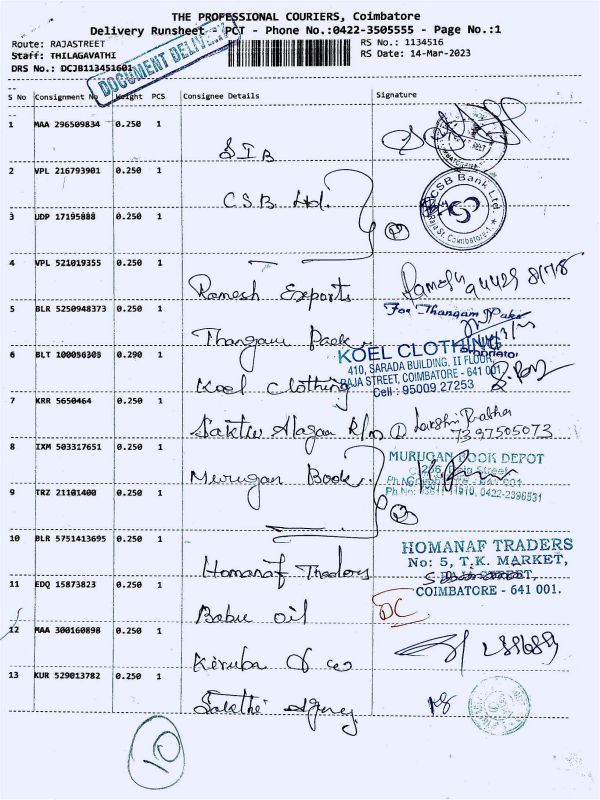 THE PROFESSIONAL COURIERS, Coimbatore
Delivery Runsheet - PCT - Phone No.:0422-3505555 - Page No.:1
Route: RAJASTREET
RS No.: 1134516
Staff: THILAGAVATHI
RS Date: 14-Mar-2023
DRS No.: DCJB113451601
DOCUMENT DELIVERY
S No Consignment No Weight PCS Consignee Details Signature
1 MAA 296509834 0.250 1
SIB
2 VPL 216793901 0.250 1
CSB Ltd.
CSB Bank Ltd.
Raja St. Coimbatore-1
3 UDP 17195888 0.250 1
2
4 VPL 521019355 0.250 1
Ramesh Exports
Ramesh
5 BLR 5250948373 0.250 1
For Thangam Paks
Thangam Pack
Proprietor
6 BLT 100056305 0.290 1
Koel Clothing
KOEL CLOTHING
410, SARADA BUILDING, II FLOOR,
RAJA STREET, COIMBATORE - 641 001
Cell : 95009 27253
7 KRR 5650464 0.250 1
Lakshmi Prabha
7397505073
8 IXM 503317651 0.250 1
Murugan Book
MURUGAN BOOK DEPOT
9 TRZ 21101400 0.250 1
2
10 BLR 5751413695 0.250 1
Homanaf Traders
HOMANAF TRADERS
No: 5, T.K. MARKET,
RAJA STREET,
COIMBATORE - 641 001.
11 EDQ 15873823 0.250 1
Babu oil
DC
12 MAA 300160898 0.250 1
Kiruba & co
13 KUR 529013782 0.250 1
Sakthi Agency
10